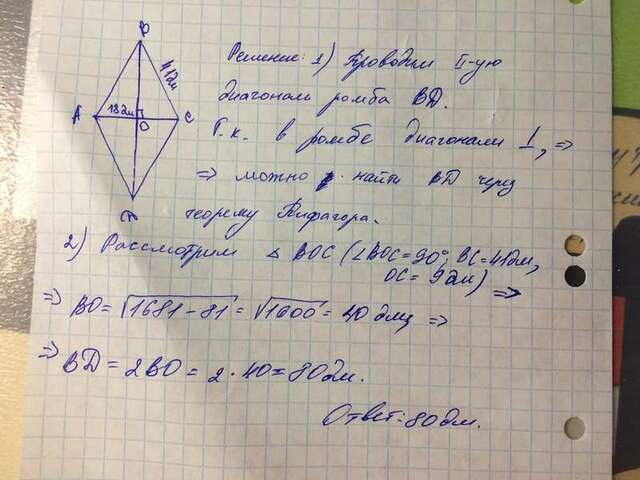 Решение: 1) Проводим II-ую
диагональ ромба BD.
Т.к. в ромбе диагонали ⊥, ⇒
⇒ можно найти BD через
теорему Пифагора.
A
B
C
O
18дм
2) Рассмотрим △ BOC (∠BOC=90°; BC=41дм,
OC=9дм) ⇒
⇒ BO = √1681-81 = √1600 = 40дм ⇒
⇒ BD = 2BO = 2 · 40 = 80дм.
Ответ: 80дм.